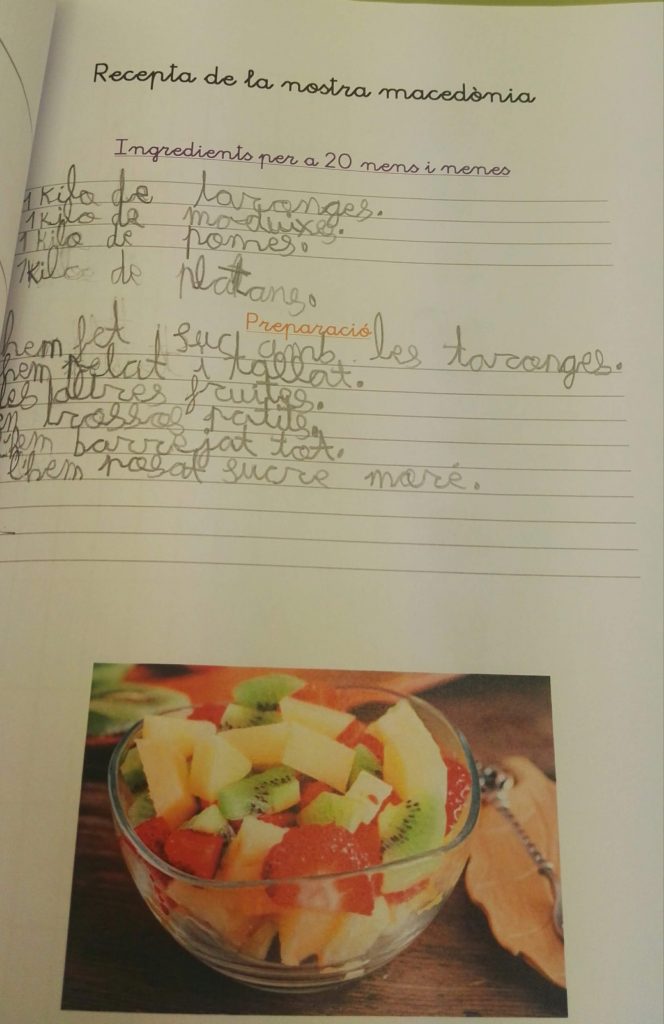 Recepta de la nostra macedònia
Ingredients per a 20 nens i nenes
1 Kilo de taronges.
1 Kilo de maduixes.
1 Kilo de pomes.
1 Kilo de platans.
Preparació
hem fet suc amb les taronges.
hem pelat i tallat.
les altres fruites.
en trossos patits.
hem barrejat tot.
l'hem posat sucre moré.